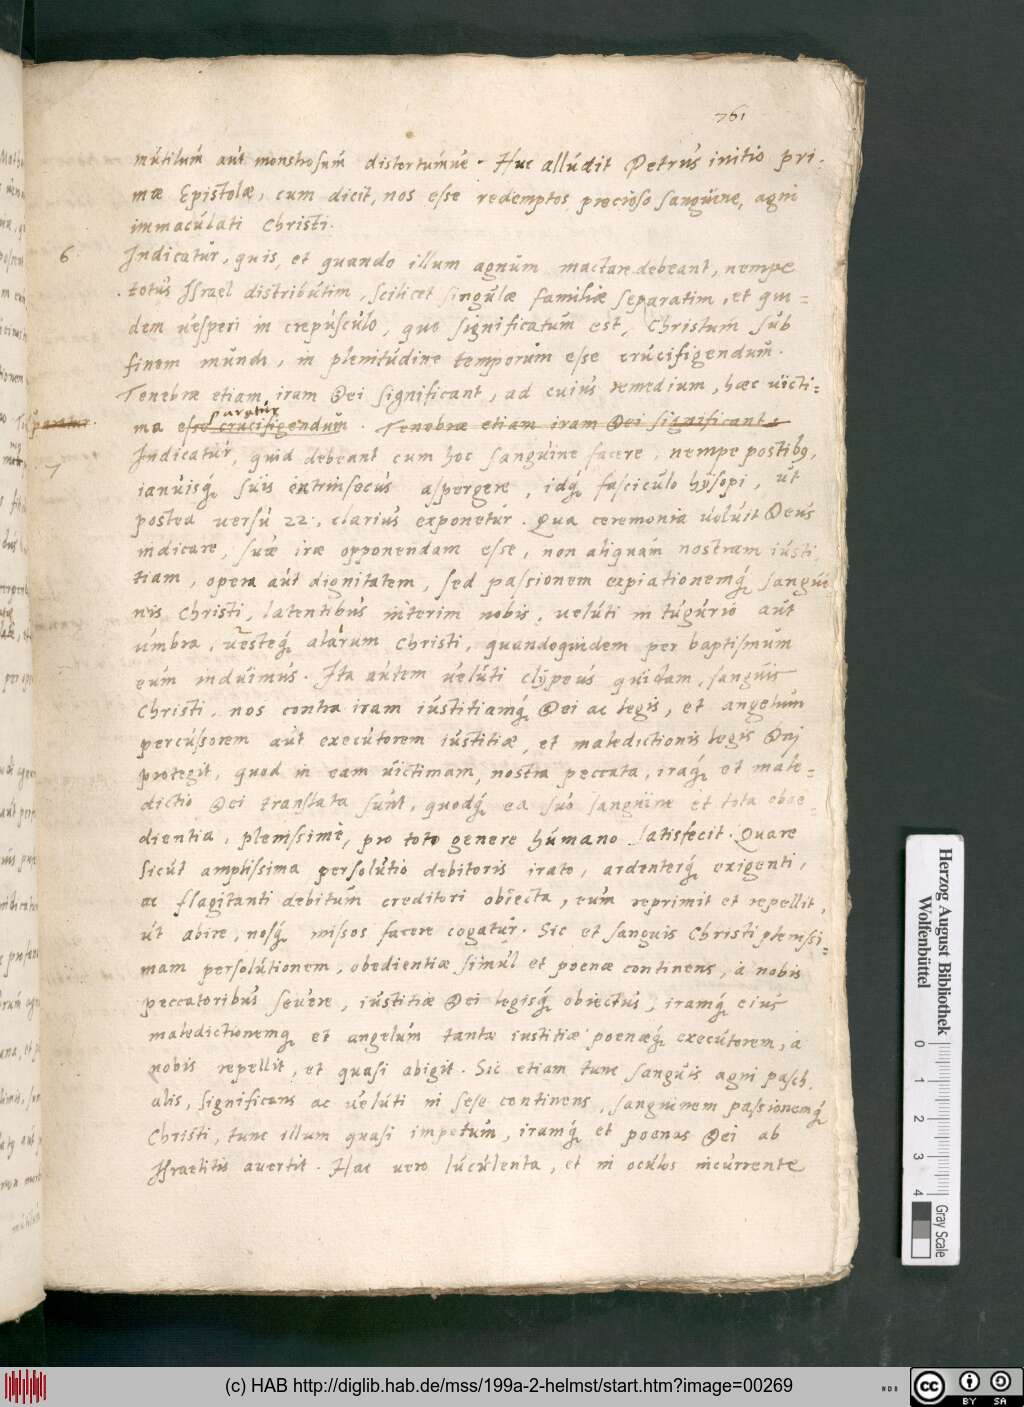 761
mutilum aut monstrosum distortumue. Huc alludit Petrus initio pri-
mæ Epistolæ, cum dicit, nos esse redemptos precioso sanguine, agni
immaculati Christi.
6 Indicatur, quis, et quando illum agnum mactare debeant, nempe
totus Israel distributim, scilicet singulæ familiæ separatim, et qui=
dem uesperi in crepusculo, quo significatum est, Christum sub
finem mundi, in plenitudine temporum esse crucifigendum.
Tenebræ etiam iram Dei significant, ad cuius remedium, hæc uicti=
paratur
ma esse crucifigendum. Tenebræ etiam iram Dei significant
7 Indicatur, quid debeant cum hoc sanguine facere, nempe postibꝯ,
ianuisq́; suis extrinsecus aspergere, idq́; fasciculo hysopi, ut
postea uersu 22, clarius exponetur. Qua ceremonia uoluit Deus
indicare, suæ iræ opponendam esse, non aliquam nostram iusti
tiam, opera aut dignitatem, sed passionem expiationemq́; sangui
nis Christi, latentibus interim nobis, ueluti in tugurio aut
umbra, uesteq́; alarum Christi, quandoquidem per baptismum
eum induimus. Ita autem ueluti clypeus quidam, sanguis
Christi, nos contra iram iustitiamq́; Dei ac legis, et angelum
percussorem aut executorem iustitiæ, et maledictionis legis Dej
protegit, quod in eam uictimam, nostra peccata, iraq́; et male=
dictio Dei translata sunt, quodq́; ea suo sanguine et tota obae=
dientia, plenissimè, pro toto genere humano satisfecit. Quare
sicut amplissima persolutio debitoris irato, ardenterq́; exigenti,
ac flagitanti debitum creditori obiecta, eum reprimit et repellit,
út abire, nosq́; missos facere cogatur. Sic et sanguis Christi plenissi=
mam persolutionem, obedientiæ simul et poenæ continens, à nobis
peccatoribus seuere, iustitiæ Dei legisq́; obiectus, iramq́; eius
maledictionemq́; et angelum tantæ iustitiæ poenæq́; executorem, à
nobis repellit, et quasi abigit. Sic etiam tunc sanguis agni pasch
alis, significans ac ueluti in sese continens, sanguinem passionemq́;
Christi, tunc illum quasi impetum, iramq́; et poenas Dei ab
Israelitis auertit. Hac uero luculenta, et in oculos incurrente
Herzog August Bibliothek
Wolfenbüttel
0 1 2 3 4
Gray Scale
(c) HAB http://diglib.hab.de/mss/199a-2-helmst/start.htm?image=00269
cc BY SA